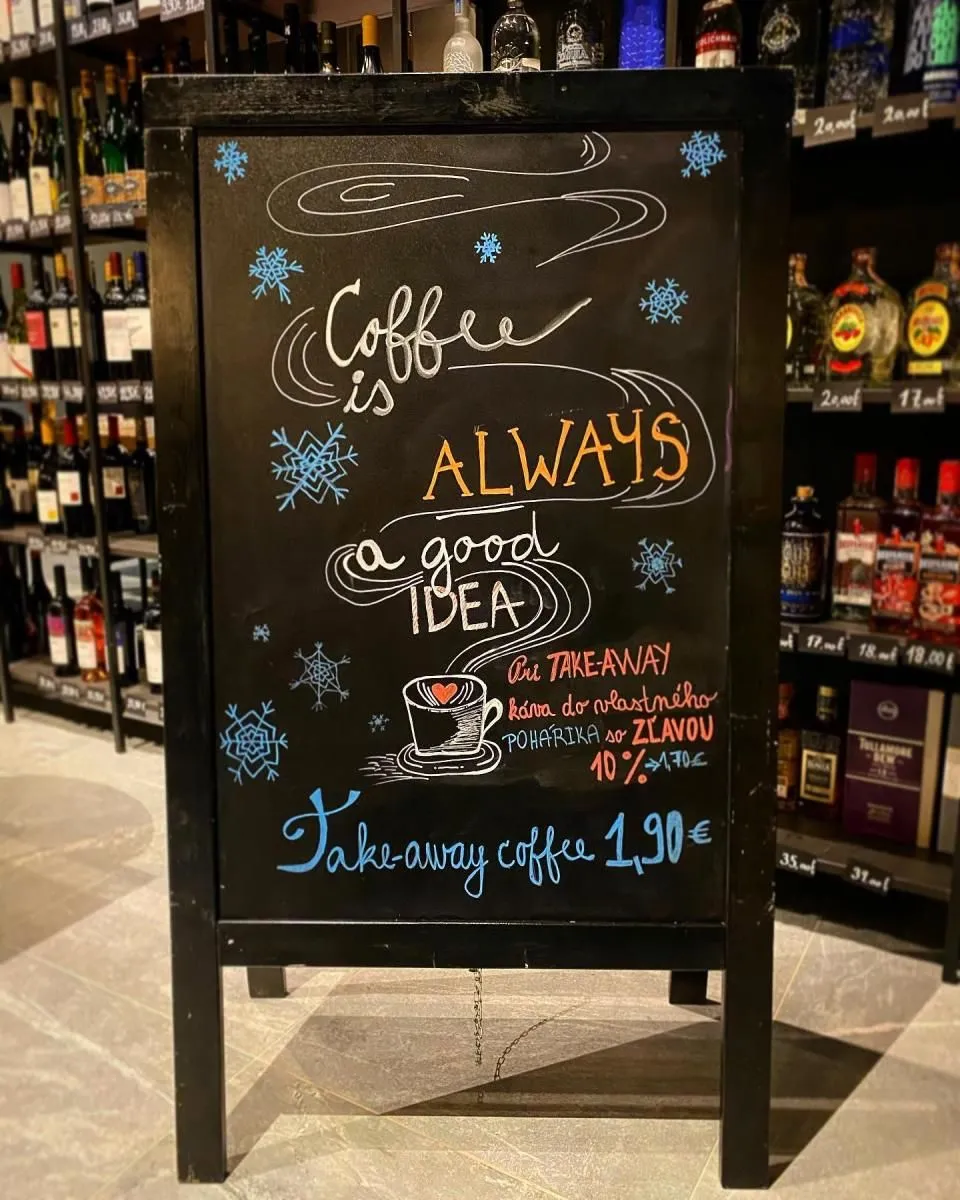 Coffee
is
ALWAYS
a good
IDEA
Pri TAKE-AWAY
káva do vlastného
POHÁRIKA so ZĽAVOU
10% → 1,70€
Take-away coffee 1,90€
20,00€ 20,00€
20,00€ 17,00€
17,00€ 18,00€ 18,00€
TULLAMORE
DEW
35,00€ 31,00€